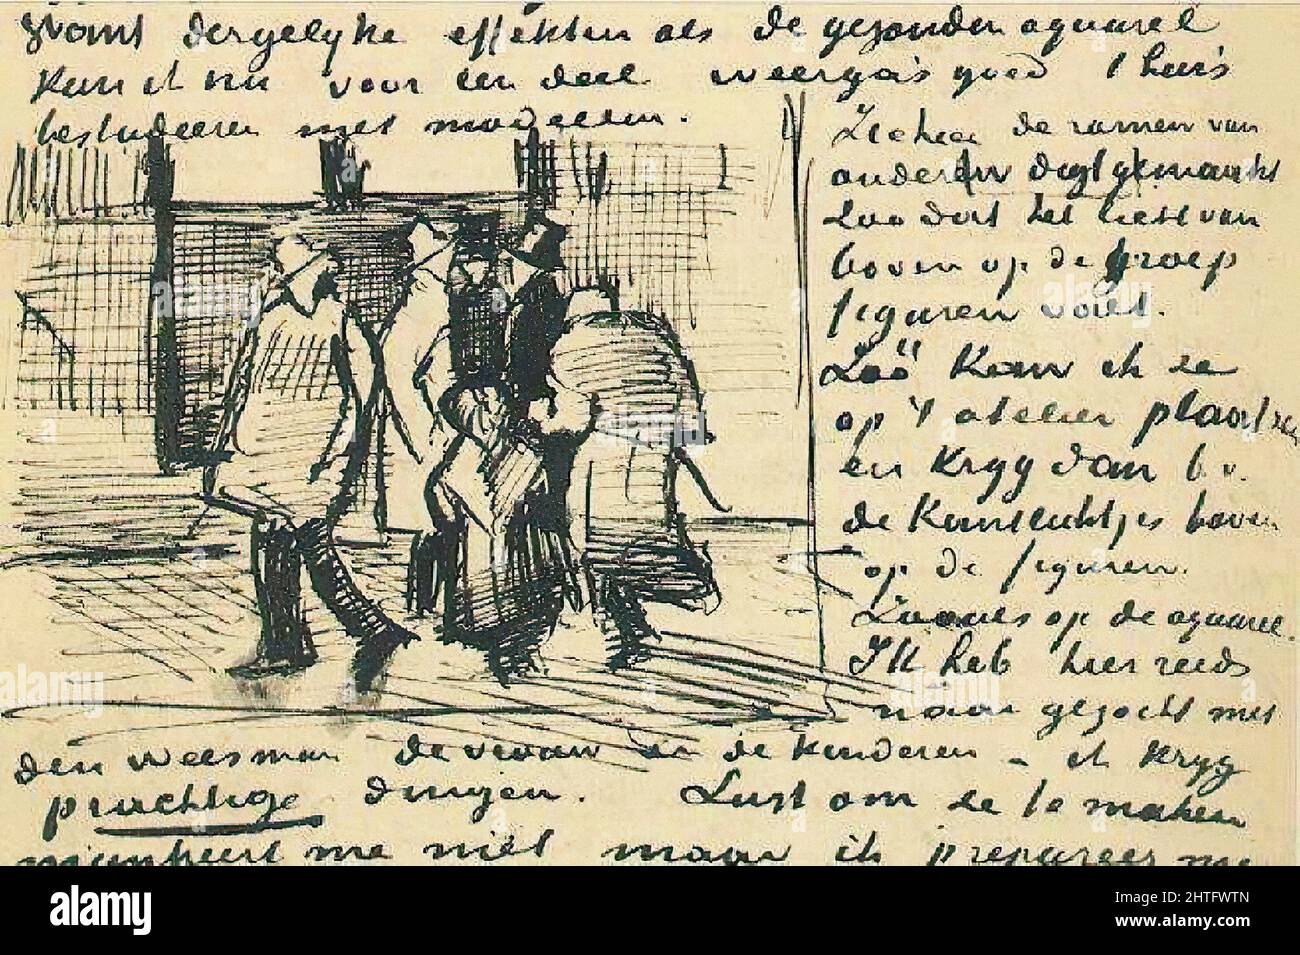 want dergelijke effekten als de gezonden aquarel
kan ik nu voor een deel weerga's goed thuis
bestudeeren met modellen.
Zie hier de ramen van
onderen digt gemaakt
Zoo dat het licht van
boven op de groep
figuren valt.
Zóó kan ik ze
op 't atelier plaatzen
en kryg dan b.v.
de kantlichtjes boven
op de figuren.
Zooals op de aquarel.
Ik heb hier reeds
naar gezocht met
den weesman de vrouw en de kinderen – ik kryg
prachtige dingen. Lust om ze te maken
mankeert me niet maar ik prepareer me
alamy
Image ID: 2HTFWTN
www.alamy.com